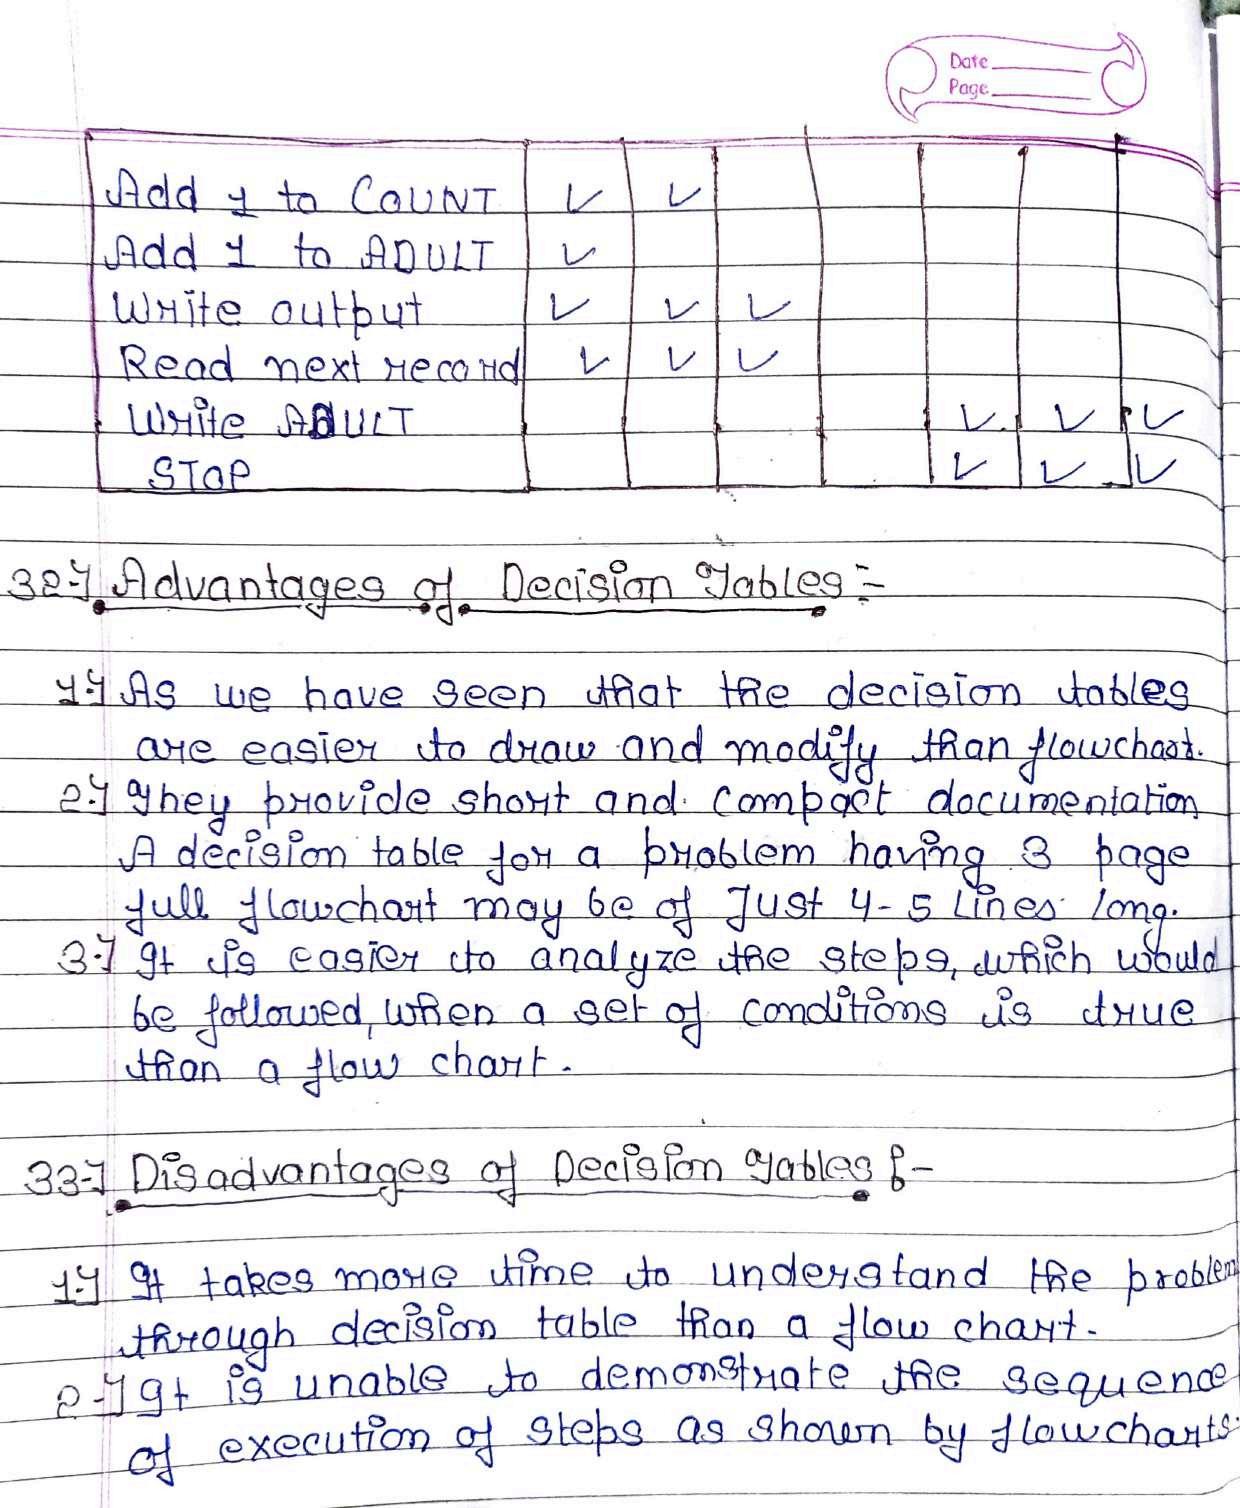 Date
Page
Add 1 to COUNT ✓ ✓
Add 1 to ADULT ✓
Write output ✓ ✓ ✓
Read next record ✓ ✓ ✓
Write ADULT ✓ ✓ ✓
STOP ✓ ✓ ✓
32-) Advantages of Decision Tables :-
1-) As we have seen that the decision tables
are easier to draw and modify than flowchart.
2-) They provide short and compact documentation
A decision table for a problem having 3 page
full flowchart may be of Just 4-5 Lines long.
3-) It is easier to analyze the steps, which would
be followed, when a set of conditions is true
than a flow chart.
33-) Disadvantages of Decision Tables :-
1-) It takes more time to understand the problem
through decision table than a flow chart.
2-) It is unable to demonstrate the sequence
of execution of steps as shown by flowcharts.